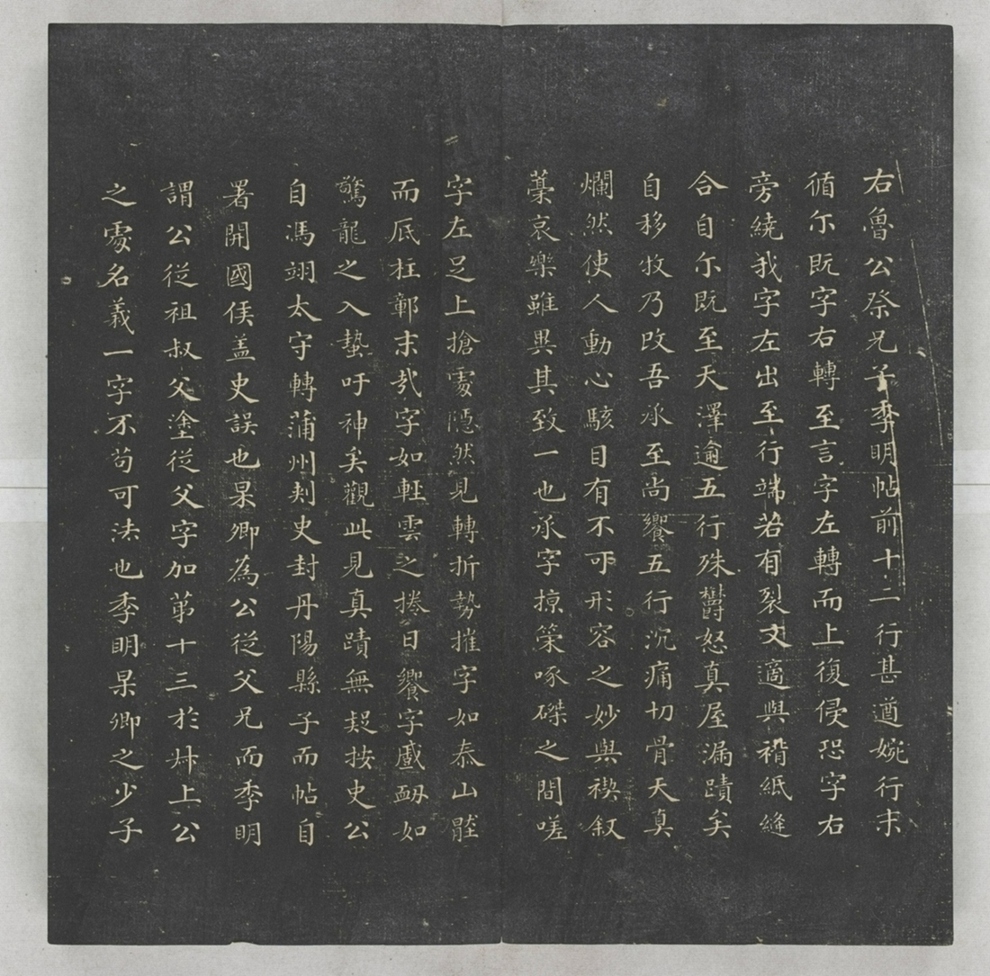 右魯公祭兄子季明帖前十二行甚遒婉行末
循尒既字右轉至言字左轉而上復侵恐字右
旁繞我字左出至行端若有裂文適與褙紙縫
合自尒既至天澤逾五行殊欝怒真屋漏蹟矣
自移牧乃改吾承至尚饗五行沉痛切骨天真
爛然使人動心駭目有不可形容之妙與禊叙
藁哀樂雖異其致一也承字掠策啄磔之間嗟
字左足上搶處隱然見轉折勢摧字如泰山
而底柱鄣末哉字如軽雲之捲日饗字蹙衂如
驚龍之入蟄吁神矣觀此見真蹟無疑按史公
自馮翊太守轉蒲州刾史封丹陽縣子而帖自
署開國侯盖史誤也杲卿為公從父兄而季明
謂公從祖叔父塗從父字加第十三於叔上公
之處名義一字不苟可法也季明杲卿之少子